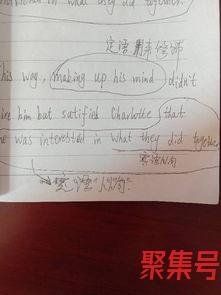 what they did together.
定语 用来修饰
his way, making up his mind didn't
him but satified Charlotte that
was interested in what they did together
宾语从句
定语从句
聚集号